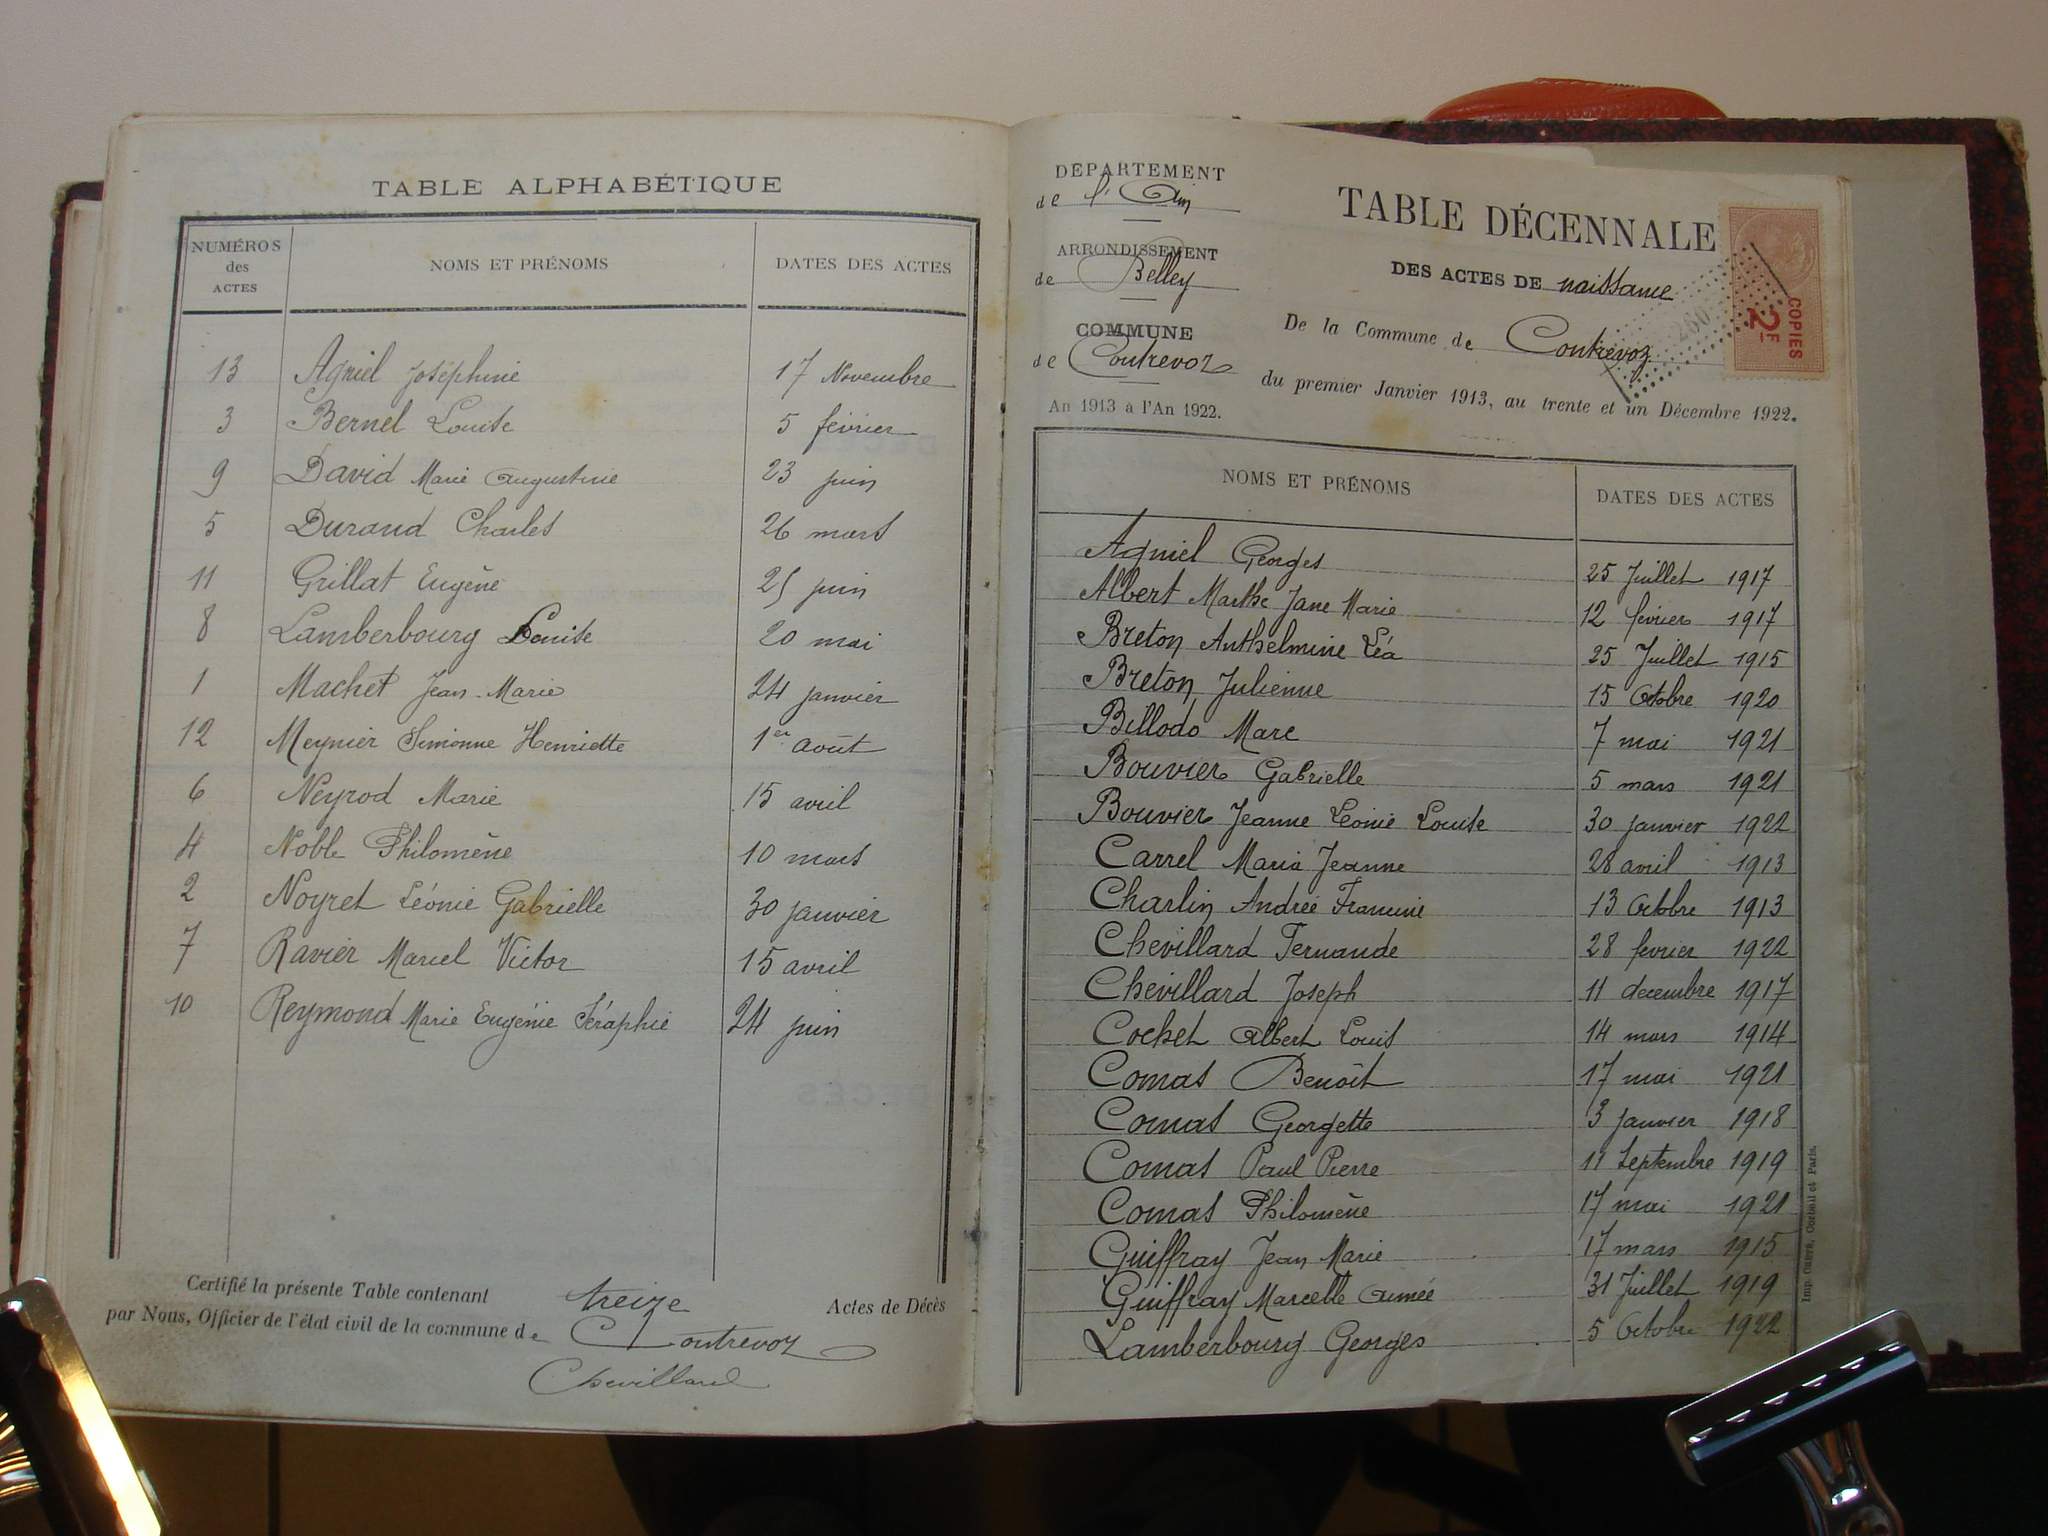 TABLE ALPHABÉTIQUE
NUMÉROS des ACTES NOMS ET PRÉNOMS DATES DES ACTES
13 Agniel Joséphine 17 Novembre
3 Bernel Louise 5 février
9 David Marie Augustine 23 juin
5 Durand Charles 26 mars
11 Grillat Eugène 25 juin
8 Lamberbourg Louise 20 mai
1 Machet Jean-Marie 24 janvier
12 Meynier Simonne Henriette 1er août
6 Neyrod Marie 15 avril
4 Noble Philomène 10 mars
2 Noyret Léonie Gabrielle 30 janvier
7 Ravier Marcel Victor 15 avril
10 Reymond Marie Eugénie Séraphie 24 juin
Certifié la présente Table contenant treize Actes de Décès
par Nous, Officier de l'état civil de la commune de Contrevoz
Chevillard
DÉPARTEMENT
de l'Ain
ARRONDISSEMENT
de Belley
COMMUNE
de Contrevoz
An 1913 à l'An 1922.
TABLE DÉCENNALE
DES ACTES DE naissance
De la Commune de Contrevoz
du premier Janvier 1913, au trente et un Décembre 1922.
COPIES
2F
260
NOMS ET PRÉNOMS DATES DES ACTES
Agniel Georges 25 Juillet 1917
Albert Marthe Jane Marie 12 février 1917
Breton Anthelmine Léa 25 Juillet 1915
Breton Julienne 15 Octobre 1920
Billodo Marc 7 mai 1921
Bouvier Gabrielle 5 mars 1921
Bouvier Jeanne Léonie Louise 30 janvier 1922
Carrel Maria Jeanne 28 avril 1913
Charlin Andrée Francine 13 Octobre 1913
Chevillard Fernande 28 fevrier 1922
Chevillard Joseph 11 decembre 1917
Cochet Albert Louis 14 mars 1914
Comas Benoît 17 mai 1921
Comas Georgette 3 janvier 1918
Comas Paul Pierre 11 Septembre 1919
Comas Philomène 17 mai 1921
Guiffray Jean Marie 17 mars 1915
Guiffray Marcelle Aimée 31 Juillet 1919
Lamberbourg Georges 5 Octobre 1922
Imp. Corbeil et Paris.